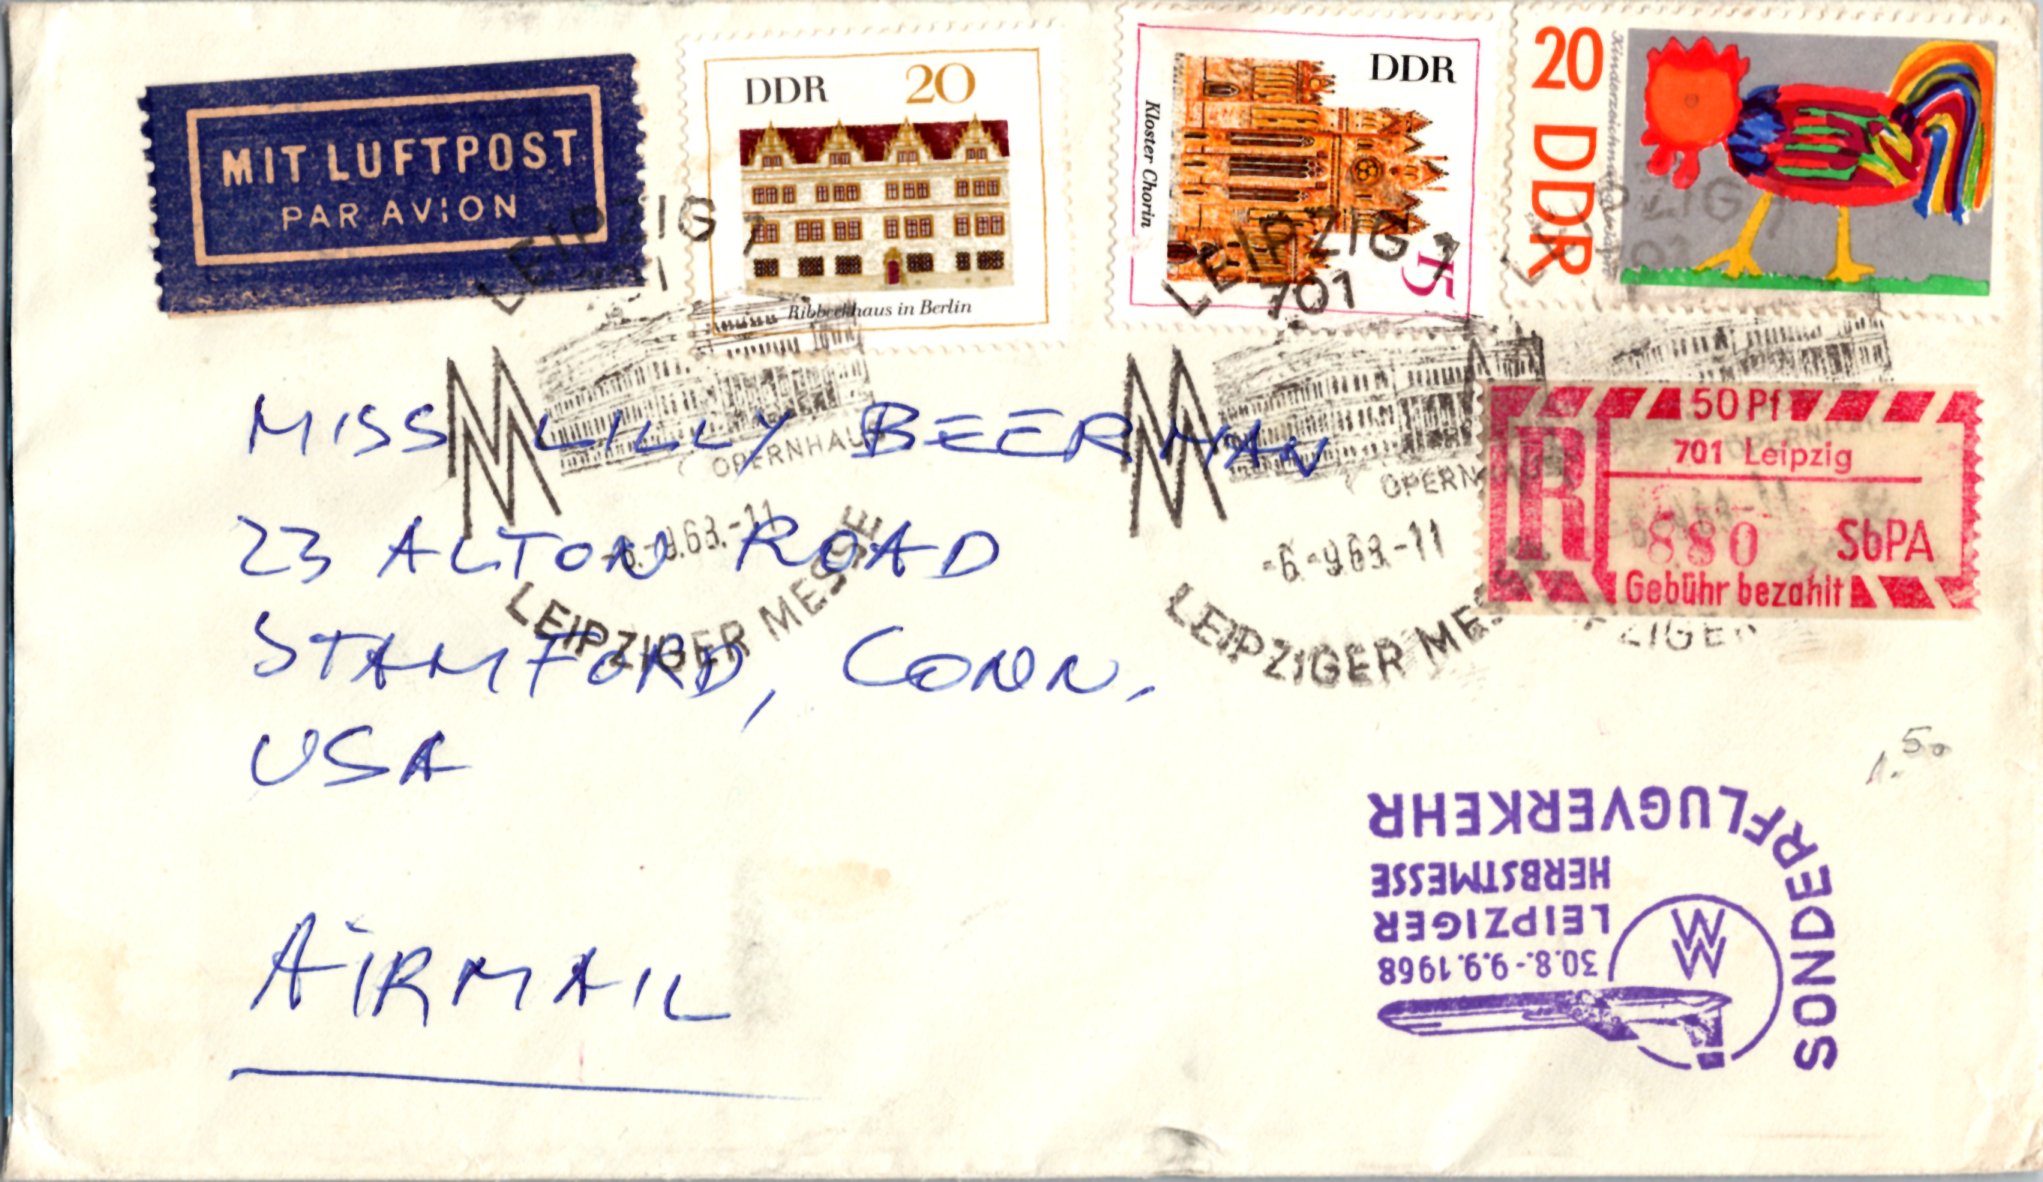 MIT LUFTPOST
PAR AVION
DDR 20
Ribbeckhaus in Berlin
DDR
Kloster Chorin
15
20 DDR
Kinderzeichnung
LEIPZIG 1
701
OPERNHAUS
-6.-9.68.-11
LEIPZIGER MESSE
LEIPZIG 1
701
OPERNHAUS
-6.-9.68.-11
LEIPZIGER MESSE
50 Pf
701 Leipzig
R
880 SbPA
Gebühr bezahlt
MISS LILLY BEERMAN
23 ALTON ROAD
STAMFORD, CONN.
USA
AIRMAIL
1.50
SONDERFLUGVERKEHR
HERBSTMESSE
LEIPZIGER
30.8.-9.9.1968